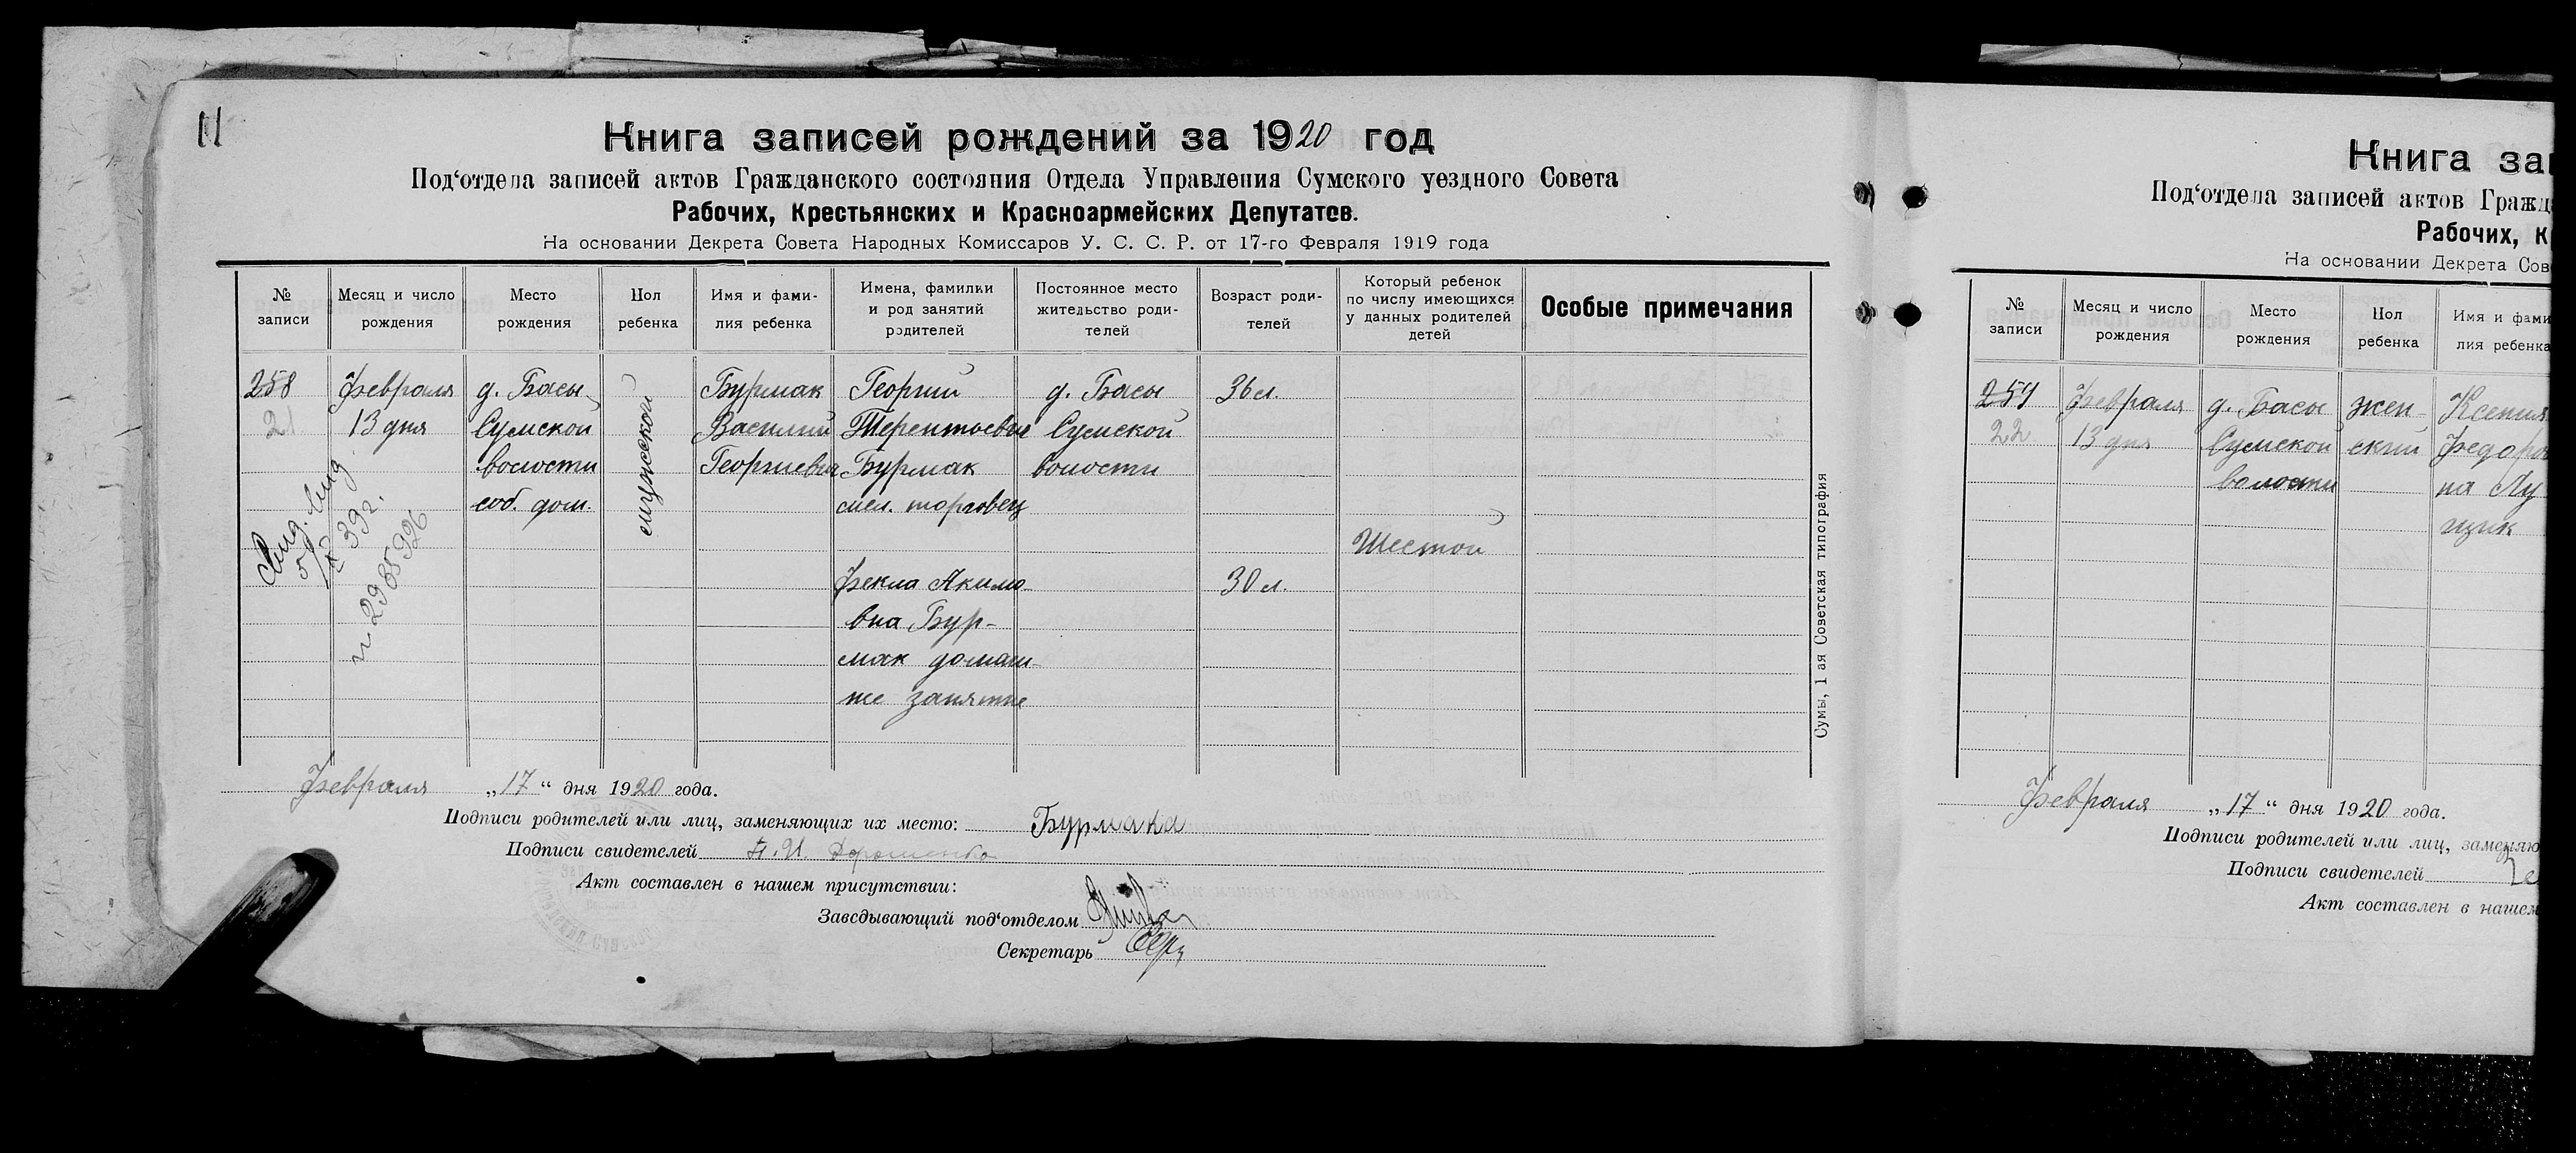 11
Книга записей рождений за 1920 год
Под‘отдела записей актов Гражданского состояния Отдела Управления Сумского уездного Совета
Рабочих, Крестьянских и Красноармейских Депутатов.
На основании Декрета Совета Народных Комиссаров У. С. С. Р. от 17-го Февраля 1919 года
№ записи
Месяц и число рождения
Место рождения
Пол ребенка
Имя и фами-
лия ребенка
Имена, фамилии
и род занятий
родителей
Постоянное место
жительство роди-
телей
Возраст роди-
телей
Который ребенок
по числу имеющихся
у данных родителей
детей
Особые примечания
258
21
Февраля
13 дня
д. Басы
Сумской
волости
соб. дом.
мужеской
Бурмак
Василий
Георгиевич
Георгий
Терентьевич
Бурмак
мел. торговец
Фекла Акимо-
вна Бур-
мак домаш-
же занятие
д. Басы
Сумской
волости
36 л.
30 л.
Шестой
39 г.
2985926
Февраля „17“ дня 1920 года.
Подписи родителей или лиц, заменяющих их место: Бурмака
Подписи свидетелей Дорошенко
Акт составлен в нашем присутствии:
Заведывающий под‘отделом
Секретарь
Сумы, 1 ая Советская типография
Книга за
Под‘отдела записей актов Гражд
Рабочих, К
На основании Декрета Сов
№ записи
Месяц и число рождения
Место рождения
Пол ребенка
Имя и фами
лия ребенка
259
22
Февраля
13 дня
д. Басы
Сумской
волости
жен-
ский
Ксения
Федоров
на Лу
щик
Февраля „17“ дня 1920 года.
Подписи родителей или лиц, заменяю
Подписи свидетелей
Акт составлен в нашем